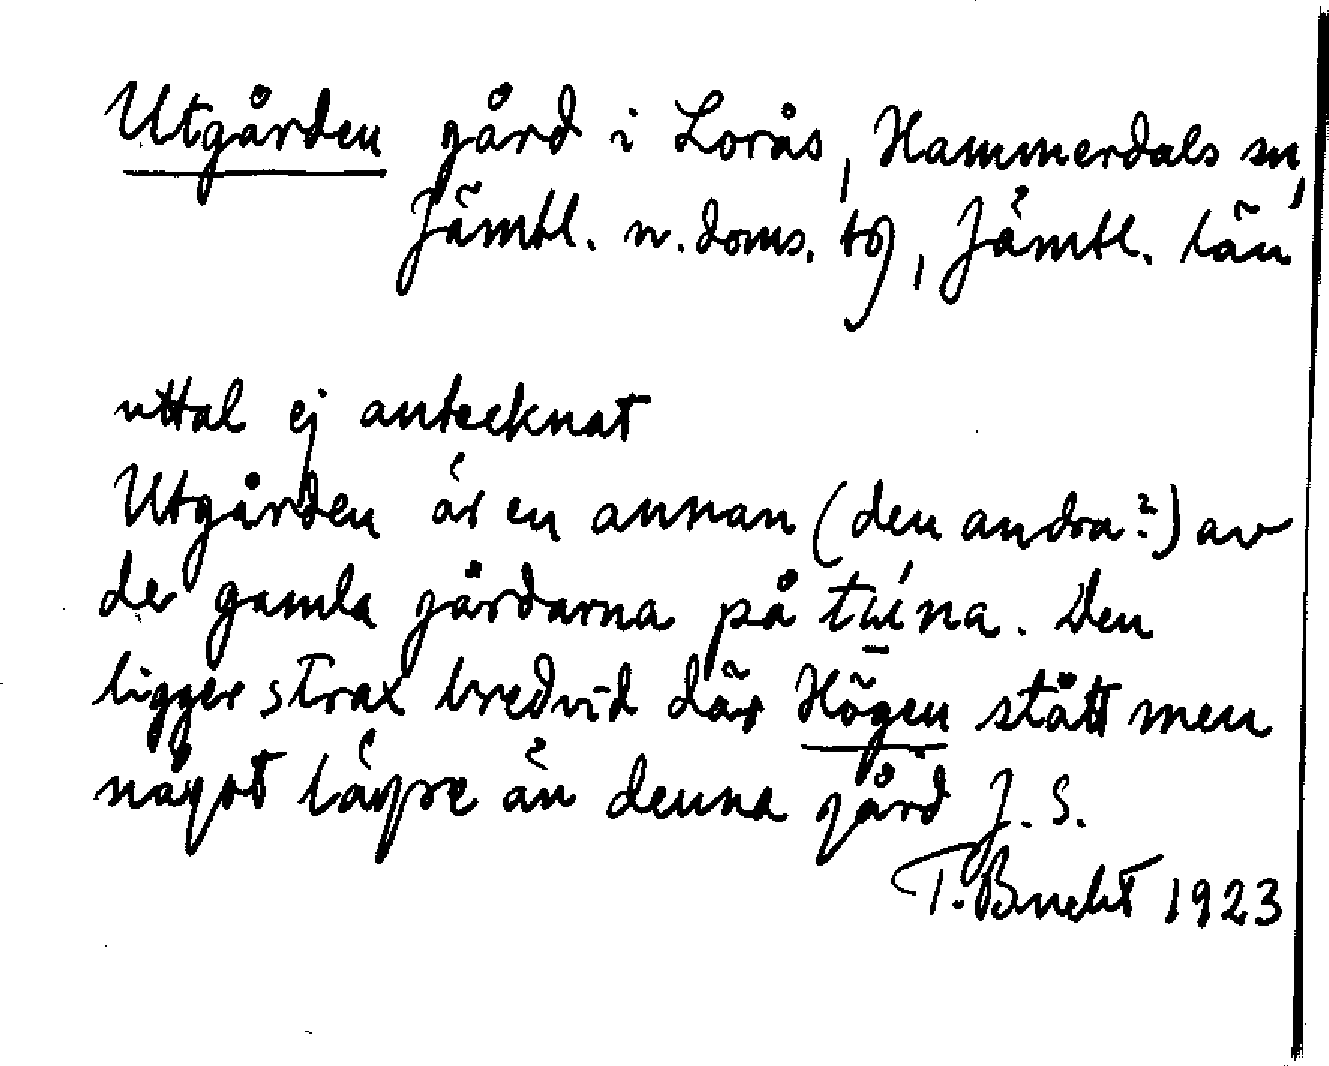 Utgården gård i Lorås, Hammerdals sn,
Jämtl. n. doms. tg, Jämtl. län
uttal ej antecknat
Utgården är en annan (den andra?) av
de gamla gårdarna på . Den
ligger strax bredvid där Högen stått men
något lägre än denna gård J. S.
T. Bucht 1923